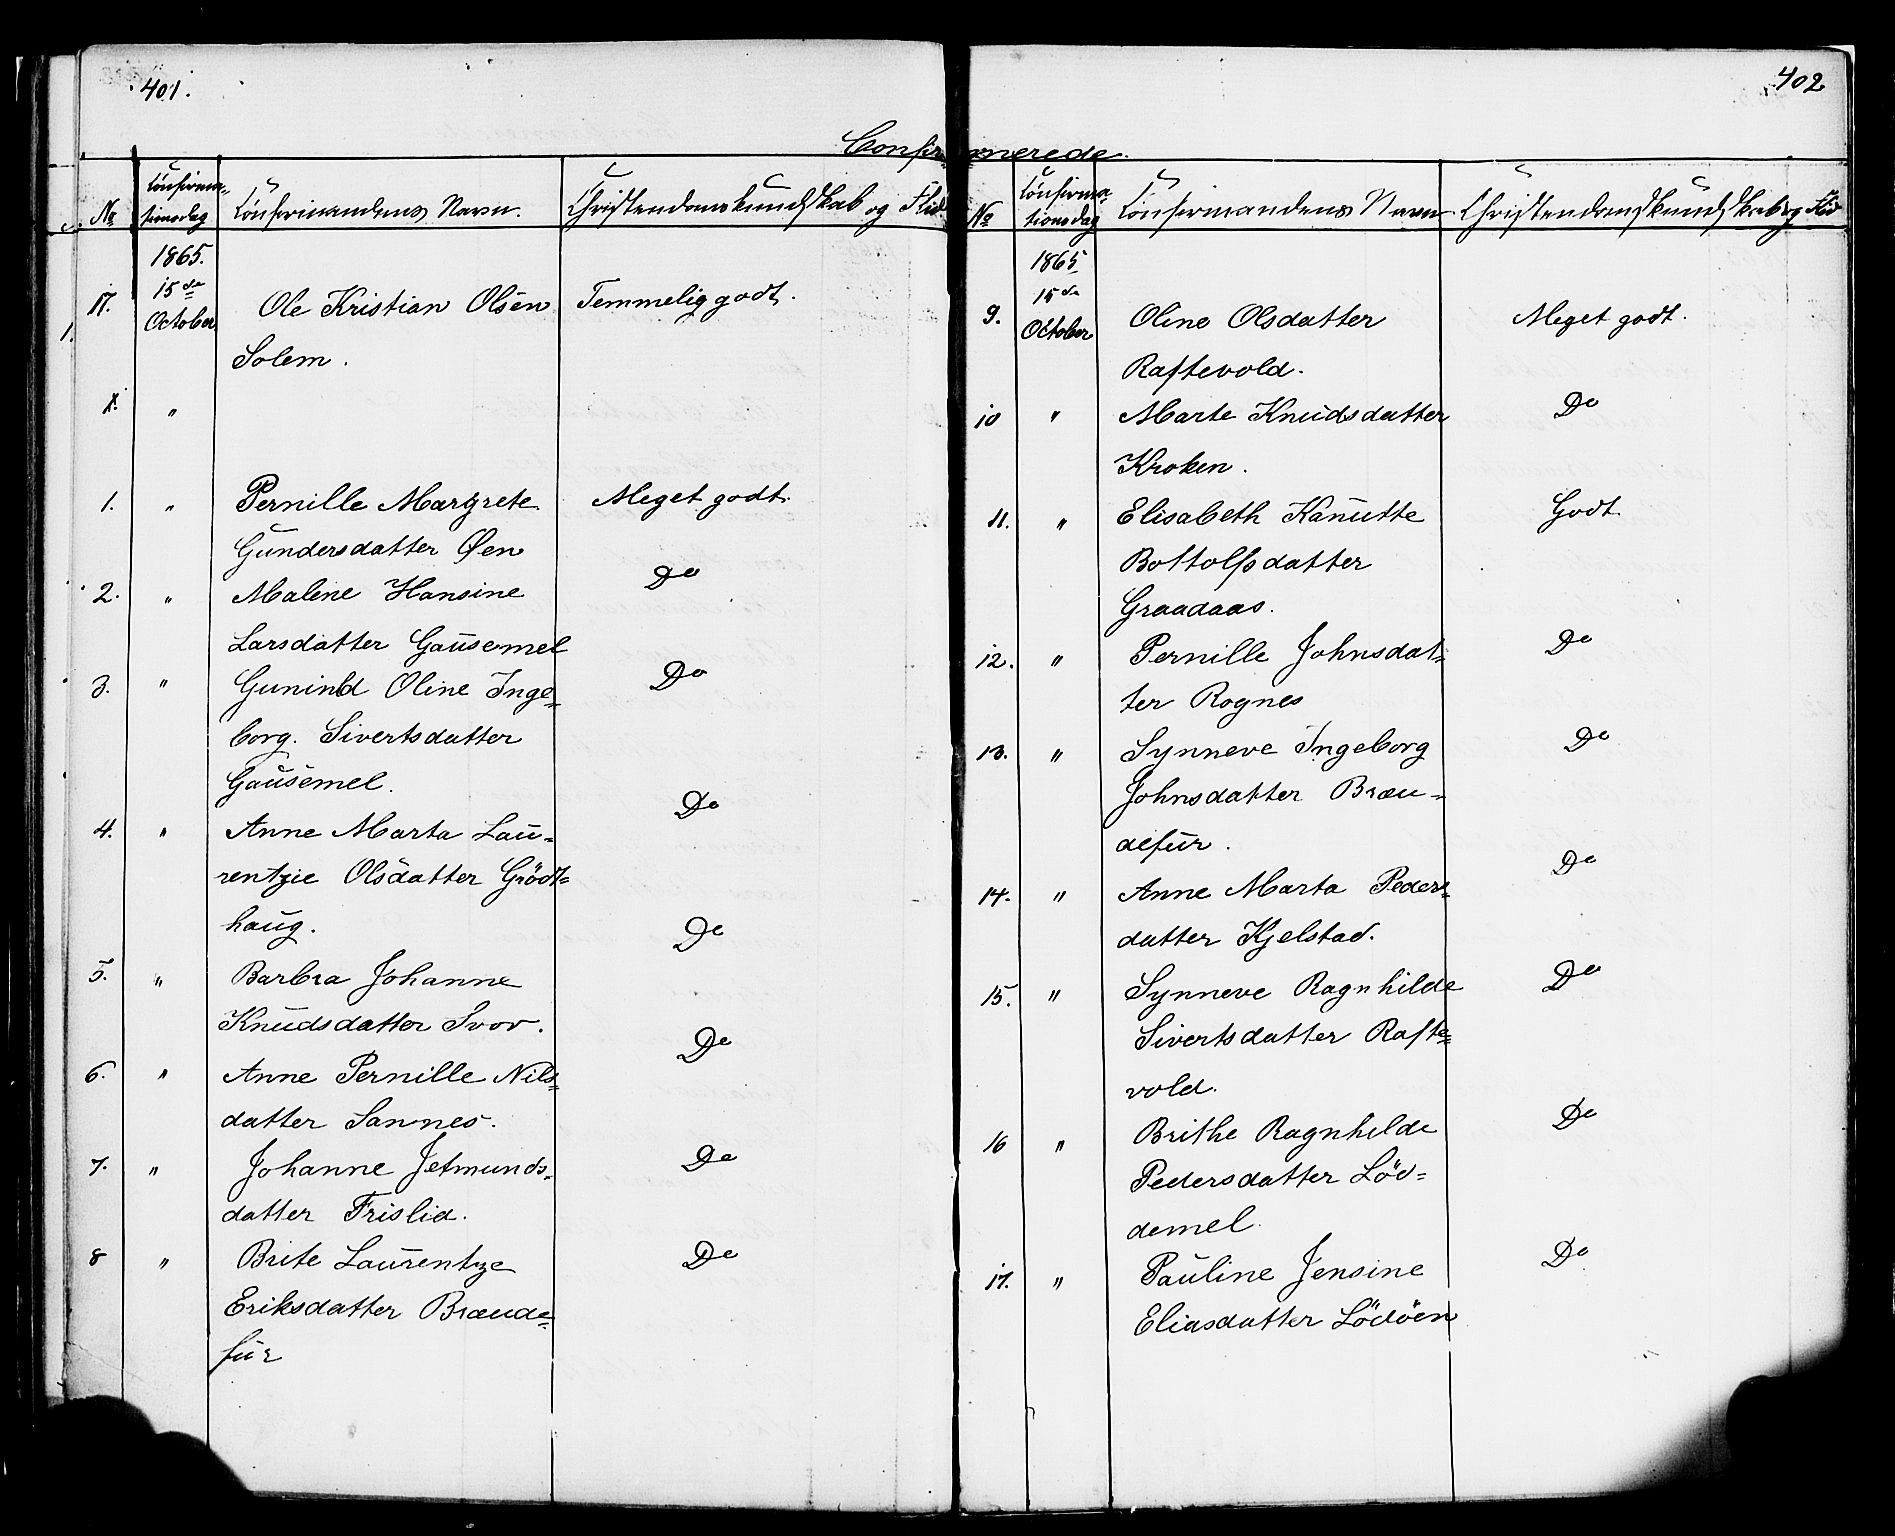 401.
402
Confirmerede.
No
Confirma-
tionsdag
Confirmandens Navn.
Christendomskundskab og Flid
1865.
17. 15de Ole Kristian Olsen Temmelig godt.
October
Solem.
1. "
1. " Pernille Margrete Meget godt.
Gundersdatter Øen
2. " Malene Hansine Do
Larsdatter Gausemel
3. " Gunild Oline Inge- Do
borg. Sivertsdatter
Gausemel.
4. " Anne Marta Lau- Do
rentzie Olsdatter Grödt-
haug.
5. " Barbra Johanne Do
Knudsdatter Svor.
6. " Anne Pernille Nils- Do
datter Sannes.
7. " Johanne Jetmunds- Do
datter Frislid.
8 " Brite Laurentze Do
Eriksdatter Brænde-
fur
No
Confirma-
tionsdag
Confirmandens Navn
Christendomskundskab og Flid
1865
15de
9. October Oline Olsdatter Meget godt.
Raftevold.
10 " Marte Knudsdatter Do
Kroken.
11. " Elisabeth Kanutte Godt
Bottolfsdatter
Graadaas.
12. " Pernille Johnsdat- Do
ter Rognes
13. " Synneve Ingeborg Do
Johnsdatter Bræn-
defur.
14. " Anne Marta Peders- Do
datter Kjelstad.
15. " Synneve Ragnhilde Do
Sivertsdatter Rafte-
vold.
16 " Brithe Ragnhilde Do
Pedersdatter Löd-
demel.
17. " Pauline Jensine Do
Eliasdatter Lödöen